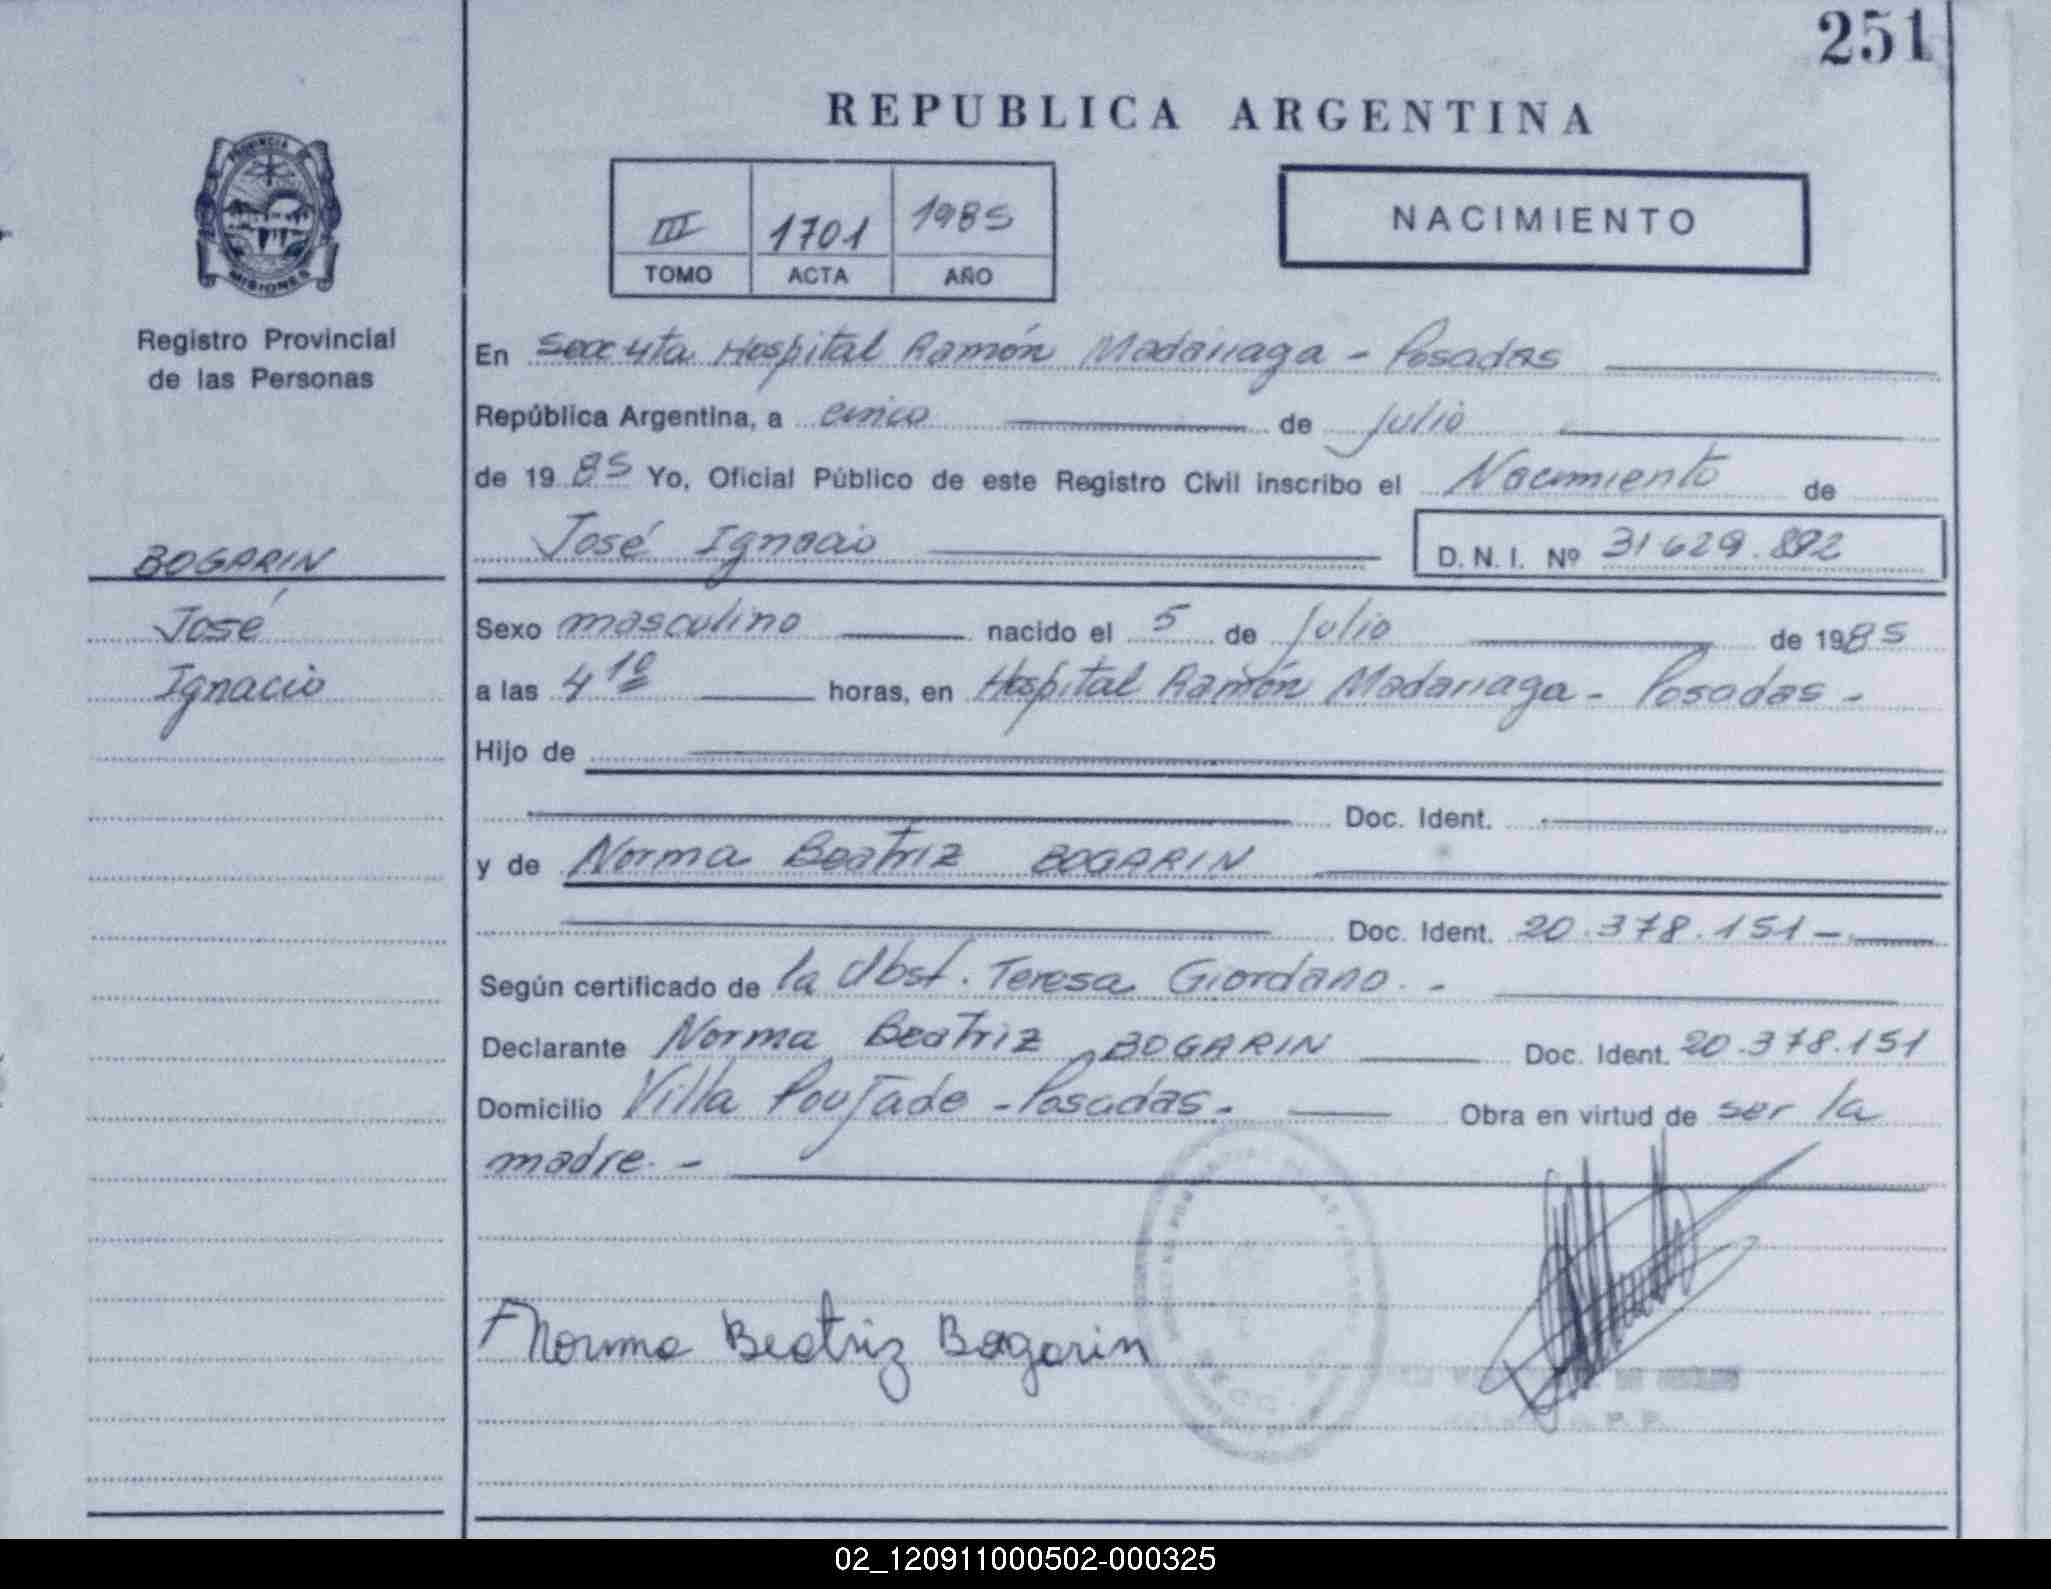 251
REPUBLICA ARGENTINA
III 1701 1985
TOMO ACTA AÑO
NACIMIENTO
PROVINCIA DE
MISIONES
Registro Provincial
de las Personas
BOGARIN
José
Ignacio
En Secc 4ta Hospital Ramón Madariaga - Posadas
República Argentina, a cinco de Julio
de 19 85 Yo, Oficial Público de este Registro Civil inscribo el Nacimiento de
José Ignacio D. N. I. Nº 31629.892
Sexo masculino nacido el 5 de Julio de 1985
a las 4 10 horas, en Hospital Ramón Madariaga - Posadas -
Hijo de
Doc. Ident.
y de Norma Beatriz BOGARIN
Doc. Ident. 20.378.151 -
Según certificado de la Obst. Teresa Giordano. -
Declarante Norma Beatriz BOGARIN Doc. Ident. 20.378.151
Domicilio Villa Poujade - Posadas. Obra en virtud de ser la
madre. -
Norma Beatriz Bogarin
02_120911000502-000325